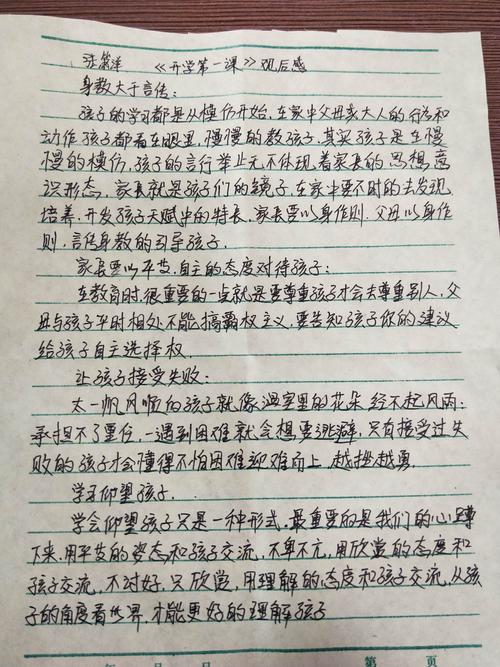 张 洋 《开学第一课》观后感
身教大于言传:
孩子的学习都是从模仿开始,在家中父母亲大人的行为和
动作孩子都看在眼里,慢慢的教孩子,其实孩子是在慢
慢的模仿,孩子的言行举止无不体现着家长的思想,意
识形态,家长就是孩子们的镜子,在家中要不时的去发现
培养,开发孩子天赋中的特长,家长要以身作则,父母以身作
则,言传身教的引导孩子.
家长要以平等.自主的态度对待孩子:
在教育时,很重要的一点就是要尊重孩子才会去尊重别人,父
母与孩子平时相处不能搞霸权主义,要告知孩子你的建议
给孩子自主选择权.
让孩子接受失败:
太一帆风顺的孩子就像温室里的花朵经不起风雨;
承担不了重任,一遇到困难就会想要逃避,只有接受过失
败的孩子才会懂得不怕困难迎难而上,越挫越勇.
学习仰望孩子.
学会仰望孩子只是一种形式,最重要的是我们的心蹲
下来,用平等的姿态和孩子交流,不卑不亢,用欣赏的态度和
孩子交流,不讨好,只欣赏,用理解的态度和孩子交流,从孩
子的角度看世界,才能更好的理解孩子
年 月 日 第 页